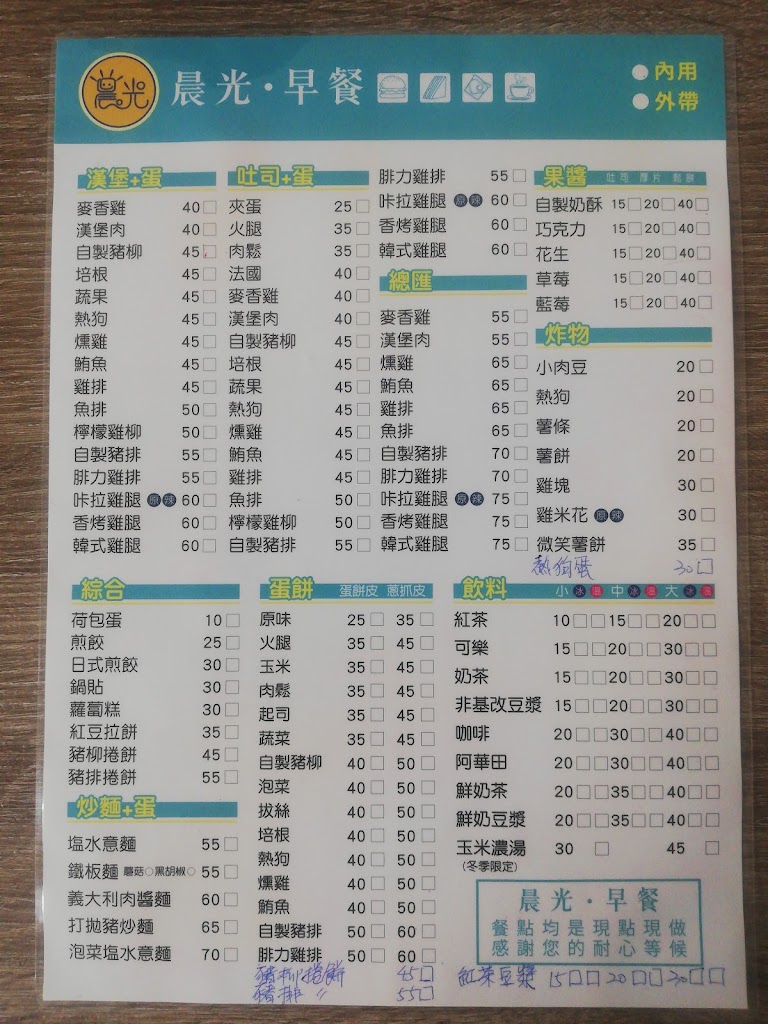 晨光
晨光·早餐
內用
外帶
漢堡+蛋
麥香雞 40
漢堡肉 40
自製豬柳 45
培根 45
蔬果 45
熱狗 45
燻雞 45
鮪魚 45
雞排 45
魚排 50
檸檬雞柳 50
自製豬排 55
腓力雞排 55
咔拉雞腿 原 辣 60
香烤雞腿 60
韓式雞腿 60
吐司+蛋
夾蛋 25
火腿 35
肉鬆 35
法國 40
麥香雞 40
漢堡肉 40
自製豬柳 45
培根 45
蔬果 45
熱狗 45
燻雞 45
鮪魚 45
雞排 45
魚排 50
檸檬雞柳 50
自製豬排 55
腓力雞排 55
咔拉雞腿 原 辣 60
香烤雞腿 60
韓式雞腿 60
總匯
麥香雞 55
漢堡肉 55
燻雞 65
鮪魚 65
雞排 65
魚排 65
自製豬排 70
腓力雞排 70
咔拉雞腿 原 辣 75
香烤雞腿 75
韓式雞腿 75
果醬 吐司 厚片 鬆餅
自製奶酥 15 20 40
巧克力 15 20 40
花生 15 20 40
草莓 15 20 40
藍莓 15 20 40
炸物
小肉豆 20
熱狗 20
薯條 20
薯餅 20
雞塊 30
雞米花 原 辣 30
微笑薯餅 35
熱狗蛋 30
綜合
荷包蛋 10
煎餃 25
日式煎餃 30
鍋貼 30
蘿蔔糕 30
紅豆拉餅 35
豬柳捲餅 45
豬排捲餅 55
炒麵+蛋
塩水意麵 55
鐵板麵 蘑菇 黑胡椒 55
義大利肉醬麵 60
打拋豬炒麵 65
泡菜塩水意麵 70
蛋餅 蛋餅皮 蔥抓皮
原味 25 35
火腿 35 45
玉米 35 45
肉鬆 35 45
起司 35 45
蔬菜 35 45
自製豬柳 40 50
泡菜 40 50
拔絲 40 50
培根 40 50
熱狗 40 50
燻雞 40 50
鮪魚 40 50
自製豬排 50 60
腓力雞排 50 60
豬柳捲餅 45
豬排 〃 55
飲料 小 冰 溫 中 冰 溫 大 冰 溫
紅茶 10 15 20
可樂 15 20 30
奶茶 15 20 30
非基改豆漿 15 20 30
咖啡 20 30 40
阿華田 20 30 40
鮮奶茶 20 35 40
鮮奶豆漿 20 35 40
玉米濃湯 30 45
(冬季限定)
晨光·早餐
餐點均是現點現做
感謝您的耐心等候
紅茶豆漿 15 20 30